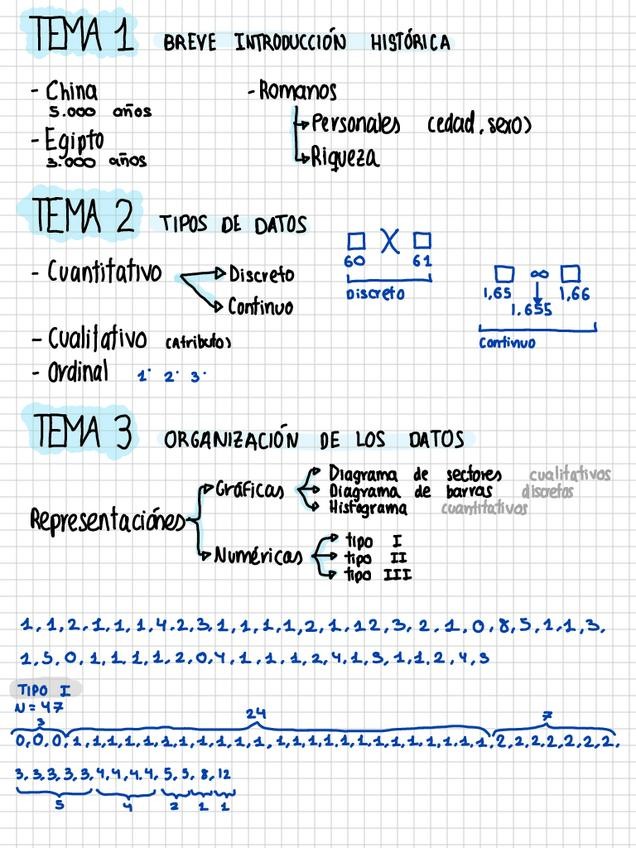 TEMA 1 BREVE INTRODUCCIÓN HISTÓRICA
- China
5.000 años
- Egipto
3.000 años
- Romanos
Personales (edad, sexo)
Riqueza
TEMA 2 TIPOS DE DATOS
- Cuantitativo
Discreto
Continuo
60 X 61
Discreto
1,65 ∞ 1,66
1.655
Continuo
- Cualitativo (Atributo)
- Ordinal 1· 2· 3·
TEMA 3 ORGANIZACIÓN DE LOS DATOS
Representaciónes
Gráficas
Diagrama de sectores cualitativos
Diagrama de barras discretos
Histograma cuantitativos
Numéricas
tipo I
tipo II
tipo III
1,1,2,1,1,1,4,2,3,1,1,1,1,2,1,12,3,2,1,0,8,5,1,1,3,
1,5,0,1,1,1,1,2,0,4,1,1,1,2,4,1,3,1,1,2,4,3
TIPO I
N = 47
3 24 7
0,0,0,1,1,1,1,1,1,1,1,1,1,1,1,1,1,1,1,1,1,1,1,1,1,1,1,2,2,2,2,2,2,2,
3,3,3,3,3,4,4,4,4,5,5,8,12
5 4 2 1 1